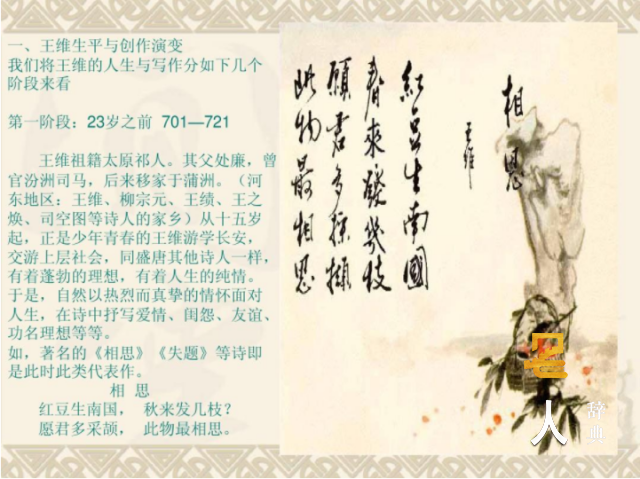 一、王维生平与创作演变
我们将王维的人生与写作分如下几个
阶段来看
第一阶段：23岁之前 701—721
王维祖籍太原祁人。其父处廉，曾
官汾洲司马，后来移家于蒲洲。（河
东地区：王维、柳宗元、王绩、王之
焕、司空图等诗人的家乡）从十五岁
起，正是少年青春的王维游学长安，
交游上层社会，同盛唐其他诗人一样，
有着蓬勃的理想，有着人生的纯情。
于是，自然以热烈而真挚的情怀面对
人生，在诗中抒写爱情、闺怨、友谊、
功名理想等等。
如，著名的《相思》《失题》等诗即
是此时此类代表作。
相 思
红豆生南国， 秋来发几枝？
愿君多采颉， 此物最相思。
相思
王维
紅豆生南國
春來發幾枝
願君多採擷
此物最相思
人
辞典